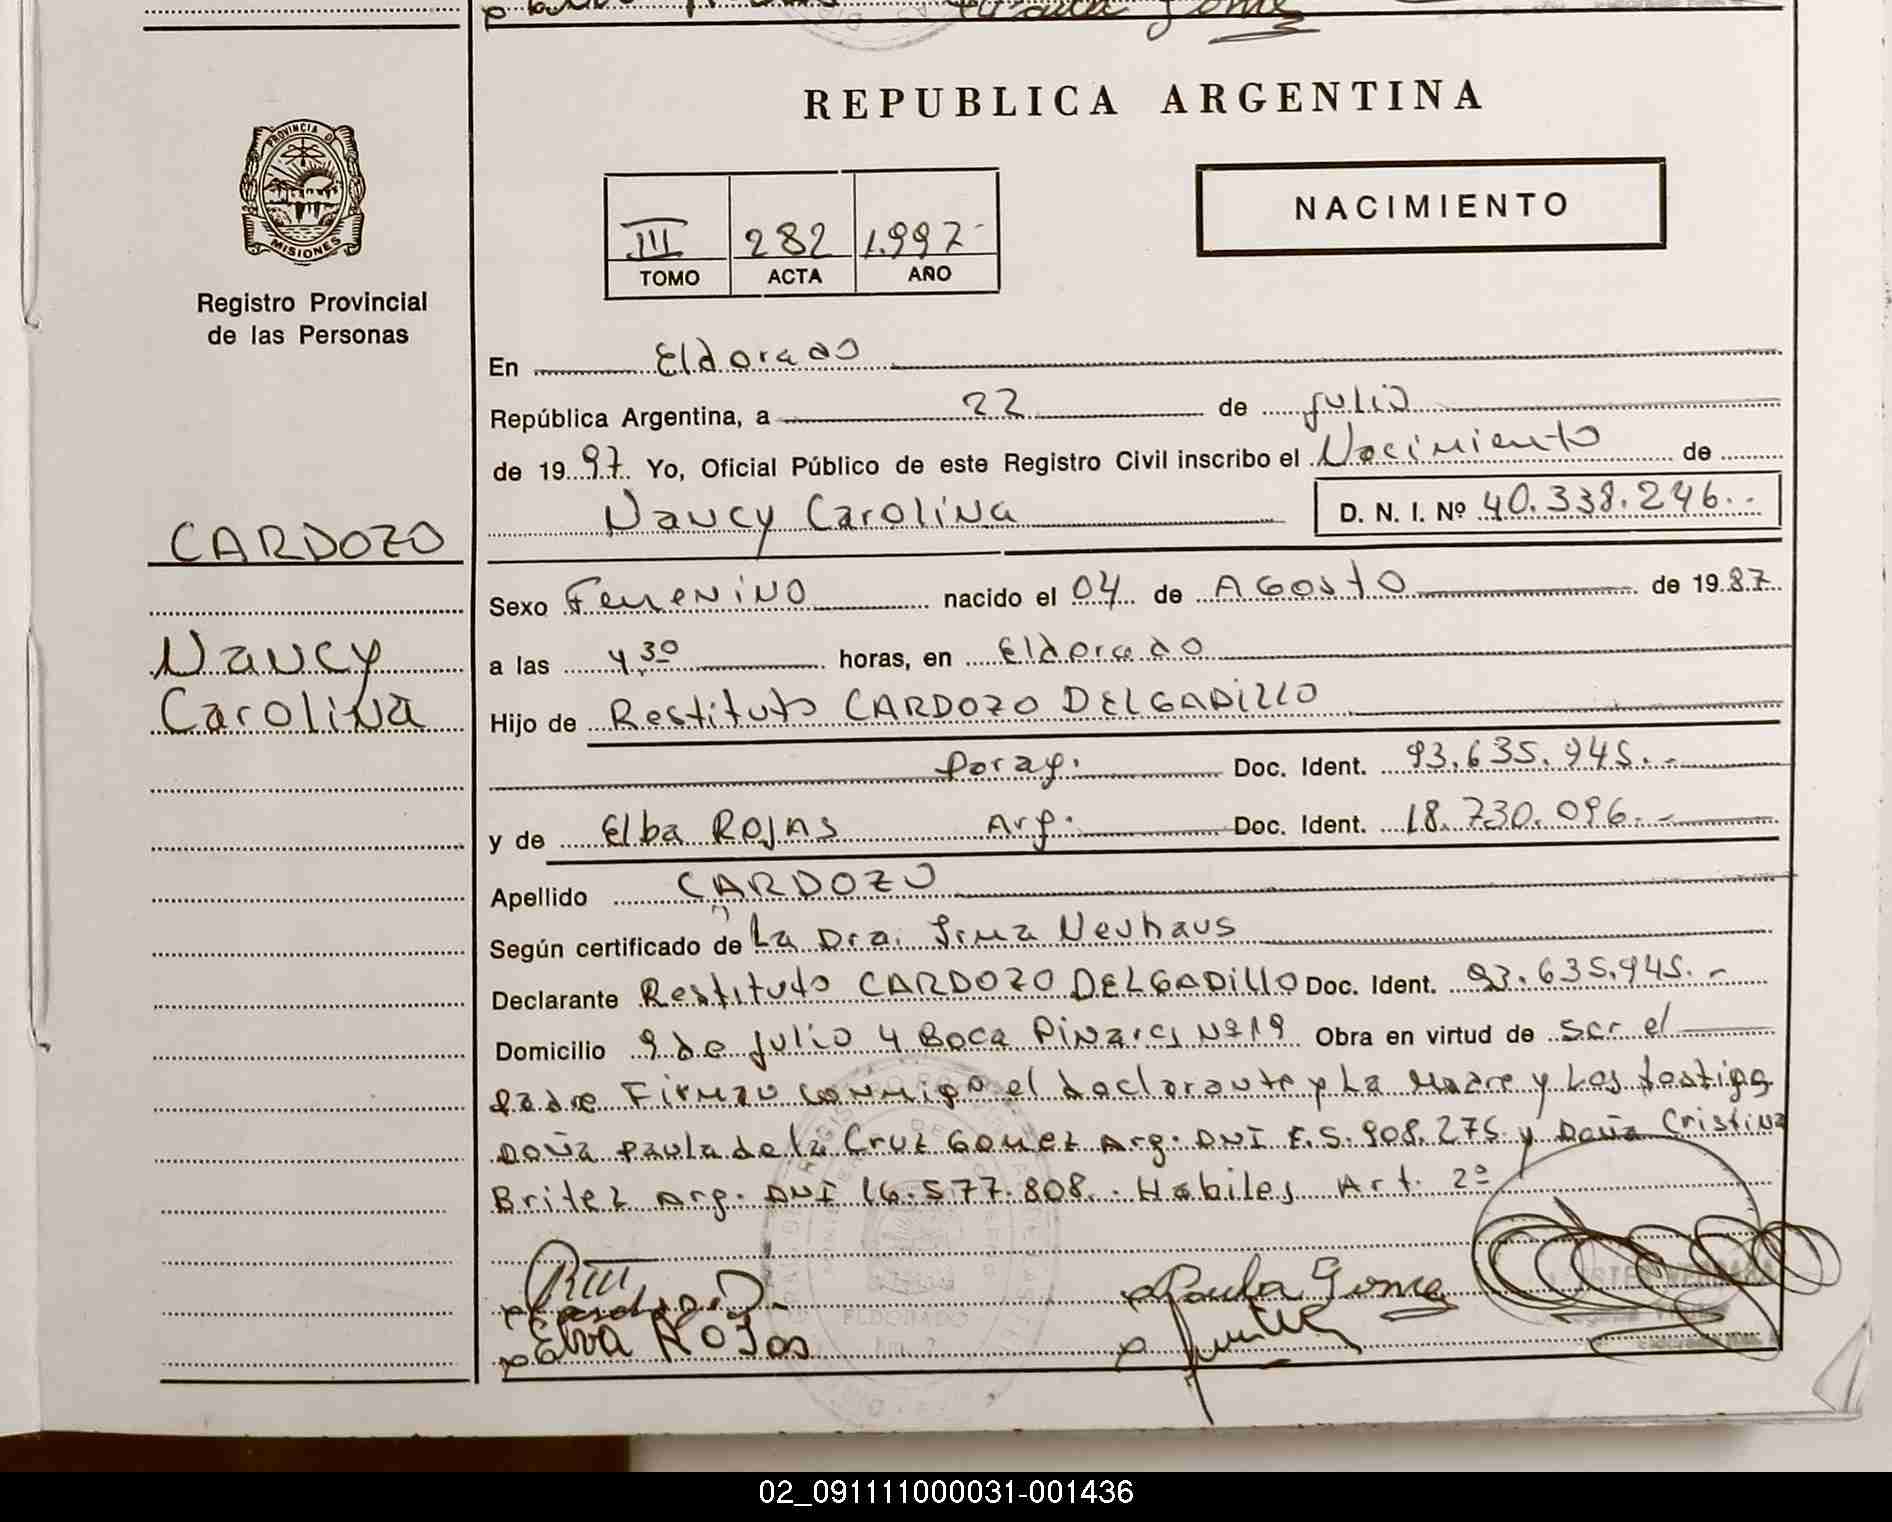 REPUBLICA ARGENTINA
PROVINCIA D
MISIONES
Registro Provincial
de las Personas
III 282 1.997-
TOMO ACTA AÑO
NACIMIENTO
CARDOZO
Nancy
Carolina
En Eldorado
República Argentina, a 22 de julio
de 1997. Yo, Oficial Público de este Registro Civil inscribo el Nacimiento de
Nancy Carolina D. N. I. Nº 40.338.246..
Sexo Femenino nacido el 04 de Agosto de 1987.
a las 4,30 horas, en Eldorado
Hijo de Restituto CARDOZO DELGADILLO
Parag. Doc. Ident. 93.635.945.-
y de Elba ROJAS Arg. Doc. Ident. 18.730.096.-
Apellido CARDOZO
Según certificado de La Dra. Irma Neuhaus
Declarante Restituto CARDOZO DELGADILLO Doc. Ident. 93.635.945.-
Domicilio 9 de julio y Boca Pinares Nº 19 Obra en virtud de ser el
Padre Firman conmigo el declarante y La madre y Los testigos
Doña Paula de la Cruz Gomez Arg. DNI F.5.908.275 y Doña Cristina
Britez Arg. DNI 16.577.808. Habiles Art. 2º
Paula Gomez
Elva Rojas
ELDORADO
02_091111000031-001436